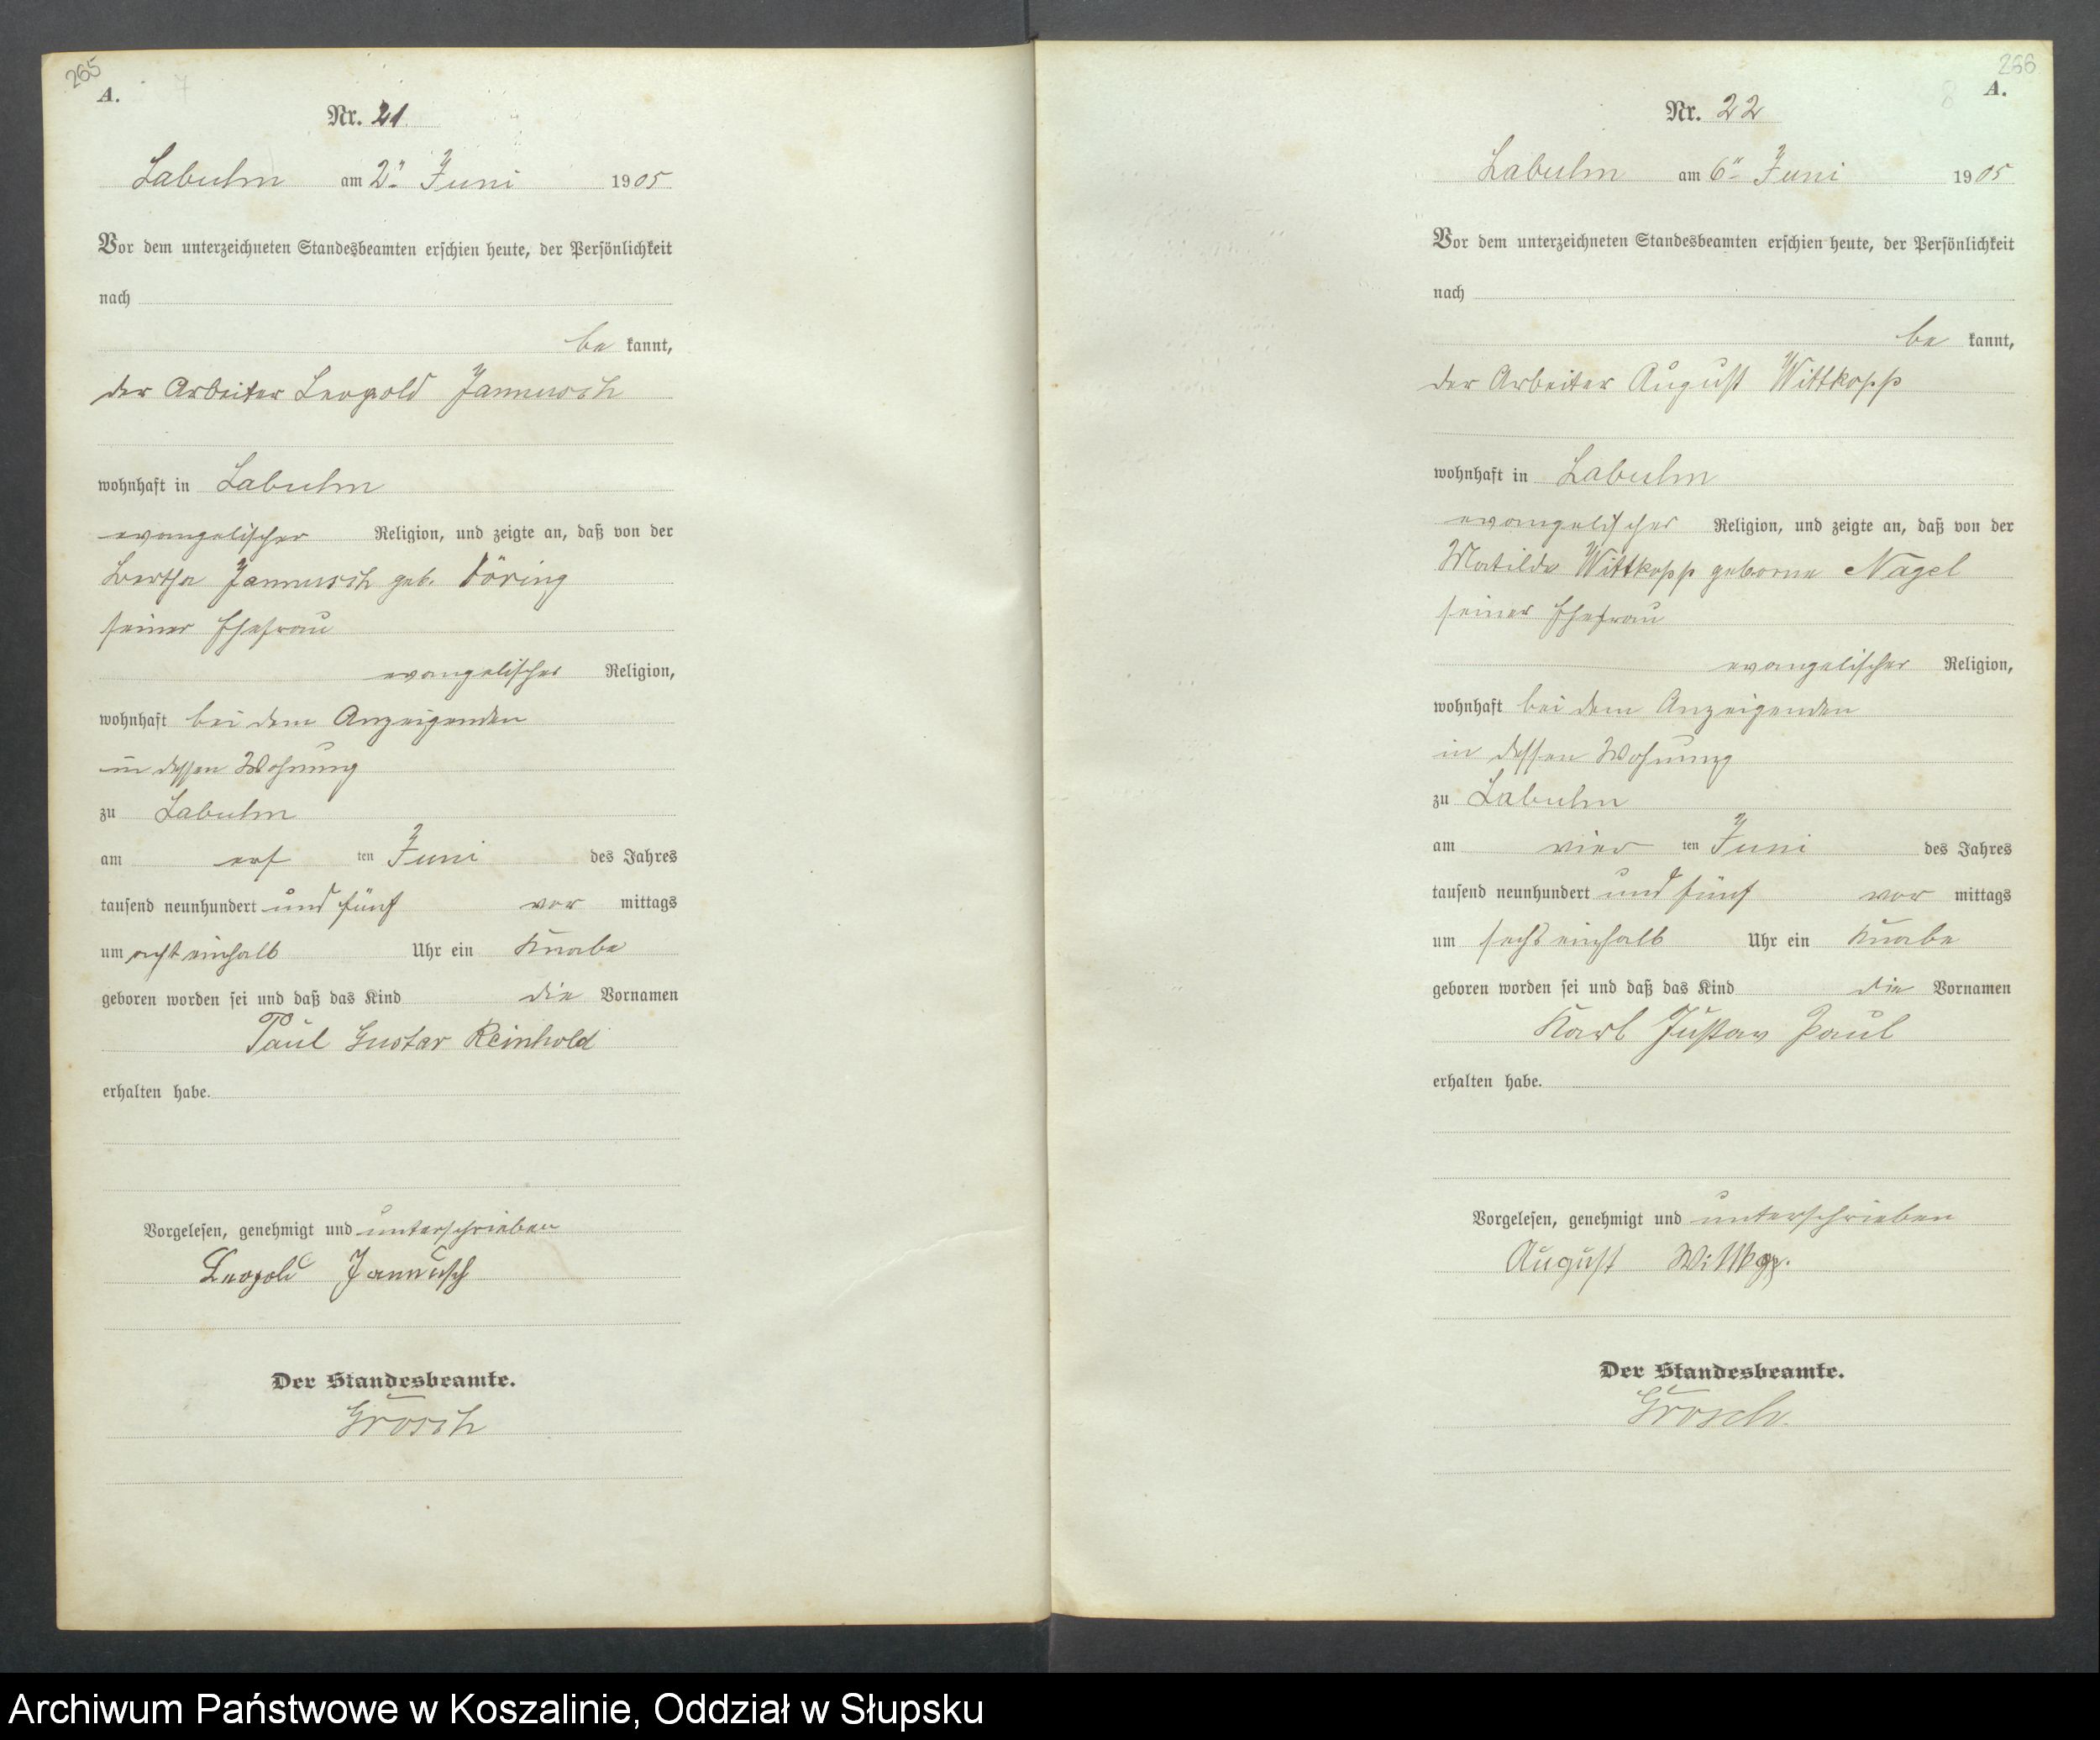 265
A.
Nr. 21
Labuhn am 2ⁿ Juni 1905
Vor dem unterzeichneten Standesbeamten erschien heute, der Persönlichkeit
nach
be kannt,
der Arbeiter Leopold Jannusch
wohnhaft in Labuhn
evangelischer Religion, und zeigte an, daß von der
Bertha Jannusch geb. Döring
seiner Ehefrau
evangelischer Religion,
wohnhaft bei dem Anzeigenden
in dessen Wohnung
zu Labuhn
am ers ten Juni des Jahres
tausend neunhundert und fünf vor mittags
um acht einhalb Uhr ein Knabe
geboren worden sei und daß das Kind die Vornamen
Paul Gustav Reinhold
erhalten habe.
Vorgelesen, genehmigt und unterschrieben
Leopold Jannusch
Der Standesbeamte.
Grosch
266
8
A.
Nr. 22
Labuhn am 6ⁿ Juni 1905
Vor dem unterzeichneten Standesbeamten erschien heute, der Persönlichkeit
nach
be kannt,
der Arbeiter August Wittkopp
wohnhaft in Labuhn
evangelischer Religion, und zeigte an, daß von der
Matilde Wittkopp geborne Nagel
seiner Ehefrau
evangelischer Religion,
wohnhaft bei dem Anzeigenden
in dessen Wohnung
zu Labuhn
am vier ten Juni des Jahres
tausend neunhundert und fünf vor mittags
um sechs einhalb Uhr ein Knabe
geboren worden sei und daß das Kind die Vornamen
Karl Gustav Paul
erhalten habe.
Vorgelesen, genehmigt und unterschrieben
August Wittkop.
Der Standesbeamte.
Grosch.
Archiwum Państwowe w Koszalinie, Oddział w Słupsku